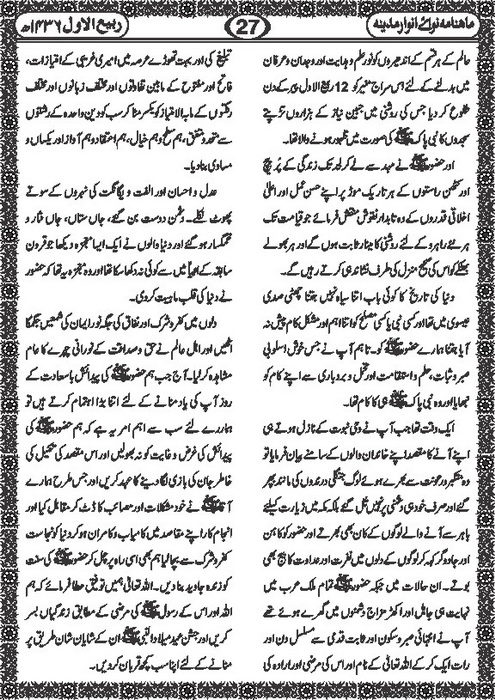 ماہنامہ نوائے انوار مدینہ
27
ربیع الاول ۱۴۳۶ھ
عالم کے ہر قسم کے اندھیروں کو نور علم و ہدایت اور وجدان و عرفان
عطا کرنے کے لئے اس سراج منیر کو 12 ربیع الاول پیر کے دن
طلوع کر دیا جس کی روشنی میں جبین نیاز کے ہزاروں تڑپتے
سجدوں کا نبی پاک ﷺ کی صورت میں ظہور ہونے والا تھا۔
اور حضور ﷺ نے مہد سے لے کر لحد تک زندگی کے پر پیچ
اور کٹھن راستوں کے ہر تاریک موڑ پر اپنے حسن عمل اور اعلیٰ
اخلاقی قدروں کے وہ تابدار نقوش منقش فرمائے جو قیامت تک
ہر نئے راہرو کے لئے روشنی کا مینار ثابت ہوں گے اور ہر بھولے
بھٹکے کو اس کی صحیح منزل کی طرف نشاندہی کرتے رہیں گے۔
دنیا کی تاریخ کا کوئی باب اتنا سیاہ نہیں جتنا چھٹی صدی
عیسوی میں تھا اور کسی نبی یا کسی مصلح کو اتنا اہم اور مشکل کام پیش نہ
آیا جتنا ہمارے حضور ﷺ کو۔ تاہم آپ نے جس خوش اسلوبی
صبر و ثبات، حلم و استقامت اور تحمل و بردباری سے اپنے کام کو
نبھایا اور وہ نبی پاک ﷺ ہی کا کام تھا۔
ایک وقت تھا جب آپ نے وحی نبوت کے نازل ہوتے ہی
اپنے آنے کا مقصد اپنے خاندان والوں کے سامنے بیان فرمایا تو
وہ متکبر و رعونت سے بھرے ہوئے لوگ جنگلی درندوں کی مانند بھر
گئے اور صرف خود ہی دشمنی پر نہیں تل گئے بلکہ مکہ میں زیارت کیلئے
باہر سے آنے والے لوگوں کے کان بھی بھرتے اور حضور کو کاہن
اور جادوگر کہہ کر لوگوں کے دلوں میں نفرت اور عداوت کا بیج بھی
بوتے۔ ان حالات میں جبکہ حضور ﷺ تمام ملک عرب میں
نہایت ہی جاہل اور اکھڑ مزاج دشمنوں میں گھرے ہوئے تھے
آپ نے انتہائی صبر و سکون اور ثابت قدمی سے مسلسل دن اور
رات ایک کر کے اللہ تعالیٰ کے نام اور اس کی مرضی اور ارادہ کی
تبلیغ کی اور بہت تھوڑے عرصہ میں امیری غریبی کے امتیازات،
فاتح اور مفتوح کے مابین تفاوتوں اور مختلف زبانوں اور مختلف
رنگوں کے مابہ الامتیاز کو یکسر مٹا کر سب کو دین واحد کے رشتوں
سے متحد و متفق، ہم سطح و ہم خیال، ہم اعتقاد و ہم آواز اور یکساں و
مساوی بنا دیا۔
عدل و احسان اور الفت و یگانگت کی نہروں کے سوتے
پھوٹ نکلے۔ دشمن دوست بن گئے، جاں ستاں، جاں نثار و
غمگسار ہو گئے اور دنیا والوں نے ایک ایسا معجزہ دیکھا جو قرون
سابقہ کے انبیاؑ میں سے کوئی نہ دکھا سکا تھا اور وہ معجزہ یہ تھا کہ حضور
نے دنیا کی قلب ماہیت کر دی۔
دلوں میں کفر و شرک اور نفاق کی جگہ نور ایمان کی شمعیں جگمگا
اٹھیں اور اہل عالم نے حق و صداقت کے نورانی چہرے کا عام
مشاہدہ کر لیا۔ آج جب ہم حضور ﷺ کی پیدائش باسعادت کے
روز آپ کی یاد منانے کے لئے اتنا بڑا اہتمام کرتے ہیں تو
ہمارے لئے سب سے اہم امر یہ ہے کہ ہم حضور ﷺ کی
پیدائش کی غرض و غایت کو نہ بھولیں اور اس مقصد کی تکمیل کی
خاطر جان کی بازی لگا دینے کا عہد کریں اور جس طرح ہمارے
آقا ﷺ نے خود مشکلات اور مصائب کا ڈٹ کر مقابلہ کیا اور
انجام کار اپنے مقاصد میں کامیاب و کامران ہو کر دنیا کو نجاست
کفر و شرک سے بچا لیا ہم بھی اسی راہ پر چل کر حضور ﷺ کی سنت
کو زندہ جاوید بنا دیں۔ اللہ تعالیٰ ہمیں توفیق عطا فرمائے کہ ہم
اللہ اور اس کے رسول ﷺ کی مرضی کے مطابق زندگیاں بسر
کریں اور جشن عید میلاد النبی ﷺ ان کے شایان شان طریق پر
منانے کے لئے اپنا سب کچھ قربان کر دیں۔